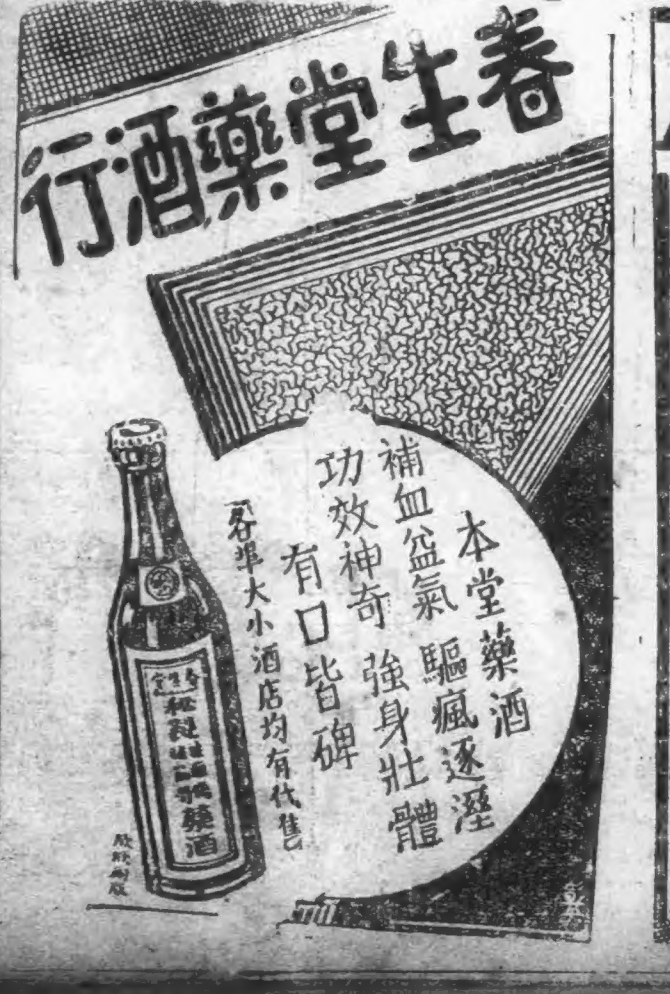 春生堂藥酒行
本堂藥酒
補血益氣 驅瘋逐溼
功效神奇 強身壯體
有口皆碑
各埠大小酒店均有代售
春生堂
秘製
藥酒